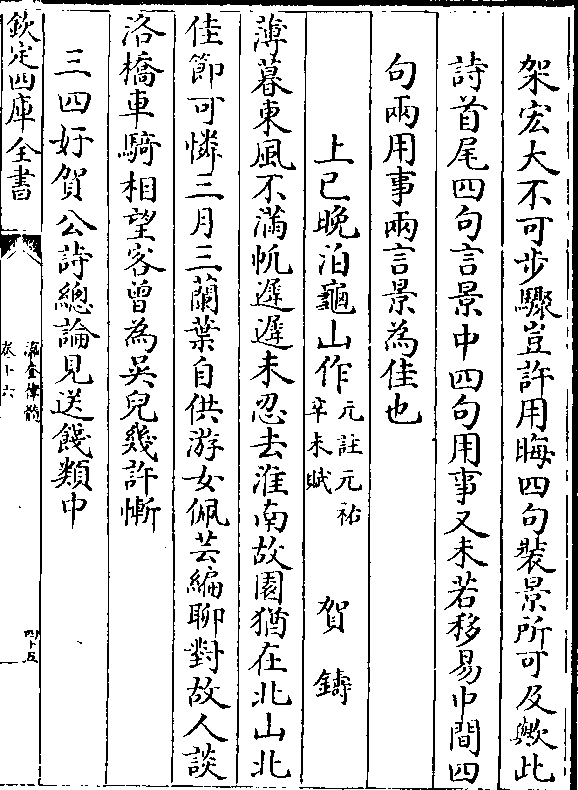 架宏大不可步驟豈許用晦四句裝景所可及歟此
詩首尾四句言景中四句用事又未若移易中間四
句兩用事兩言景為佳也
上巳晚泊龜山作元註元祐辛未賦 賀鑄
薄暮東風不滿帆遲遲未忍去淮南故園猶在北山北
佳節可憐三月三蘭葉自供游女佩芸編聊對故人談
洛橋車騎相望客曾為吳兒幾許慚
三四好賀公詩總論見送餞類中
欽定四庫全書
瀛奎律髓
卷十六
四十五